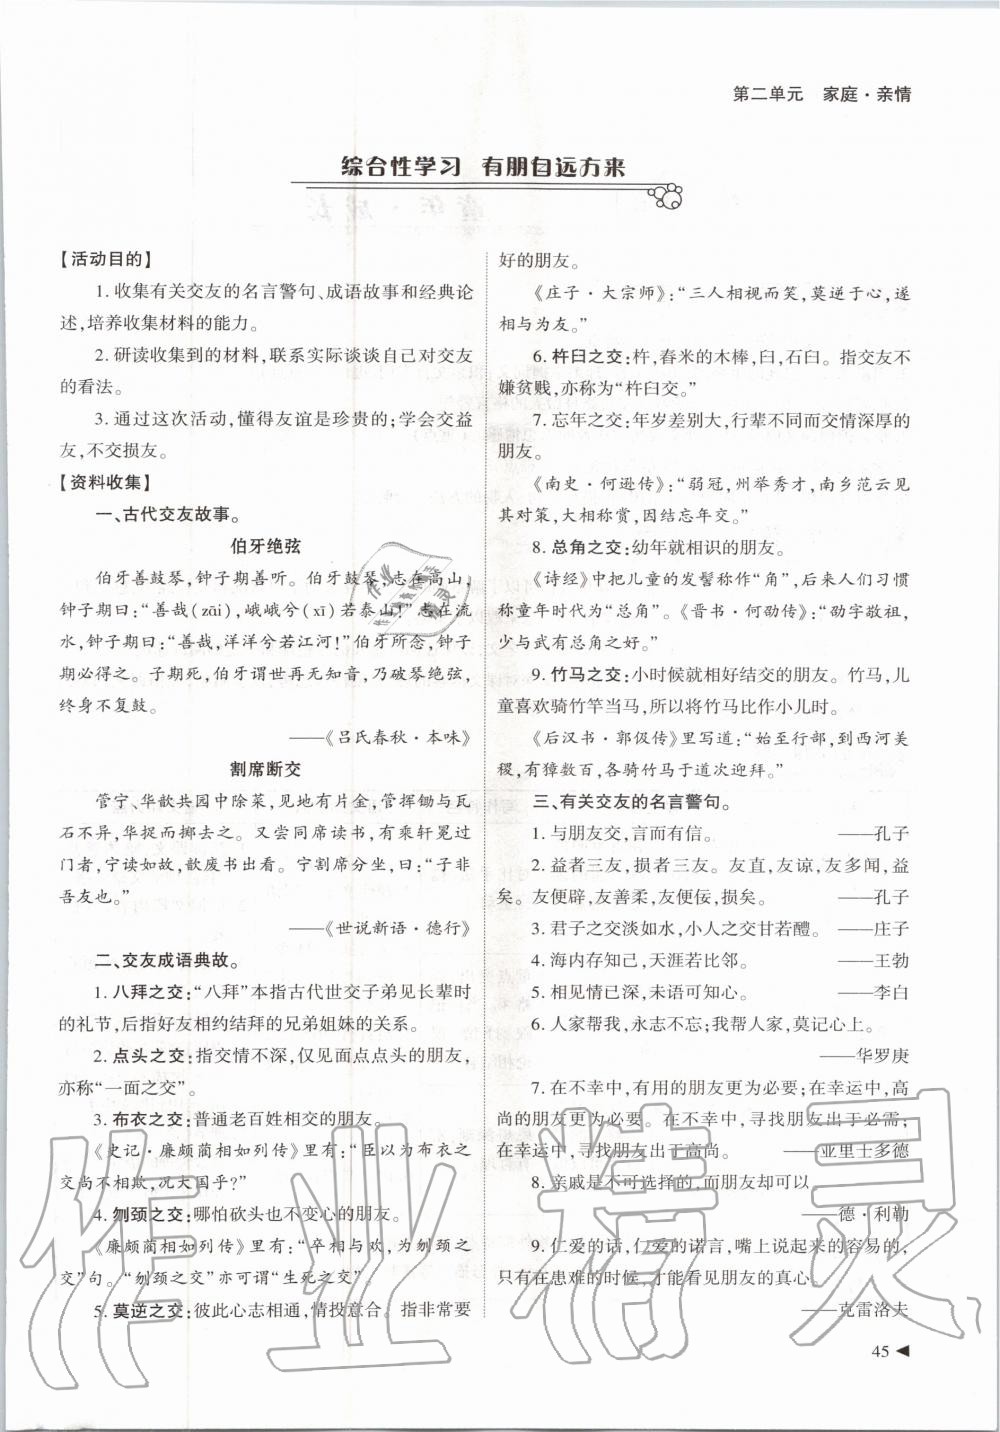 第二单元 家庭·亲情
综合性学习 有朋自远方来
【活动目的】
1. 收集有关交友的名言警句、成语故事和经典论
述,培养收集材料的能力。
2. 研读收集到的材料,联系实际谈谈自己对交友
的看法。
3. 通过这次活动,懂得友谊是珍贵的;学会交益
友,不交损友。
【资料收集】
一、古代交友故事。
伯牙绝弦
伯牙善鼓琴,钟子期善听。伯牙鼓琴,志在高山,
钟子期曰:“善哉(zāi),峨峨兮(xī)若泰山!”志在流
水,钟子期曰:“善哉,洋洋兮若江河!”伯牙所念,钟子
期必得之。子期死,伯牙谓世再无知音,乃破琴绝弦,
终身不复鼓。
——《吕氏春秋·本味》
割席断交
管宁、华歆共园中除菜,见地有片金,管挥锄与瓦
石不异,华捉而掷去之。又尝同席读书,有乘轩冕过
门者,宁读如故,歆废书出看。宁割席分坐,曰:“子非
吾友也。”
——《世说新语·德行》
二、交友成语典故。
1. 八拜之交:“八拜”本指古代世交子弟见长辈时
的礼节,后指好友相约结拜的兄弟姐妹的关系。
2. 点头之交:指交情不深,仅见面点点头的朋友,
亦称“一面之交”。
3. 布衣之交:普通老百姓相交的朋友。
《史记·廉颇蔺相如列传》里有:“臣以为布衣之
交尚不相欺,况大国乎?”
4. 刎颈之交:哪怕砍头也不变心的朋友。
《廉颇蔺相如列传》里有:“卒相与欢,为刎颈之
交”句。“刎颈之交”亦可谓“生死之交”。
5. 莫逆之交:彼此心志相通,情投意合。指非常要
好的朋友。
《庄子·大宗师》:“三人相视而笑,莫逆于心,遂
相与为友。”
6. 杵臼之交:杵,舂米的木棒,臼,石臼。指交友不
嫌贫贱,亦称为“杵臼交。”
7. 忘年之交:年岁差别大,行辈不同而交情深厚的
朋友。
《南史·何逊传》:“弱冠,州举秀才,南乡范云见
其对策,大相称赏,因结忘年交。”
8. 总角之交:幼年就相识的朋友。
《诗经》中把儿童的发髻称作“角”,后人们习惯
称童年时代为“总角”。《晋书·何劭传》:“劭字敬祖,
少与武有总角之好。”
9. 竹马之交:小时候就相好结交的朋友。竹马,儿
童喜欢骑竹竿当马,所以将竹马比作小儿时。
《后汉书·郭伋传》里写道:“始至行部,到西河美
稷,有獐数百,各骑竹马于道次迎拜。”
三、有关交友的名言警句。
1. 与朋友交,言而有信。 ——孔子
2. 益者三友,损者三友。友直,友谅,友多闻,益
矣。友便辟,友善柔,友便佞,损矣。 ——孔子
3. 君子之交淡如水,小人之交甘若醴。 ——庄子
4. 海内存知己,天涯若比邻。 ——王勃
5. 相见情已深,未语可知心。 ——李白
6. 人家帮我,永志不忘;我帮人家,莫记心上。
——华罗庚
7. 在不幸中,有用的朋友更为必要;在幸运中,高
尚的朋友更为必要。在不幸中,寻找朋友出于必需,
在幸运中,寻找朋友出于高尚。 ——亚里士多德
8. 亲戚是不可选择的,而朋友却可以
——德·利勒
9. 仁爱的话,仁爱的诺言,嘴上说起来的容易的,
只有在患难的时候,才能看见朋友的真心。
——克雷洛夫
45
作业精灵